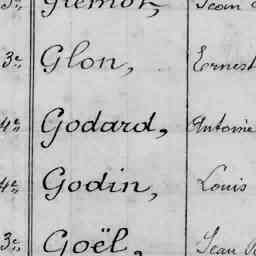 3e, Glon, Ernest
4e, Godard, Antoine
4e, Godin, Louis
3e, Goël, Jean